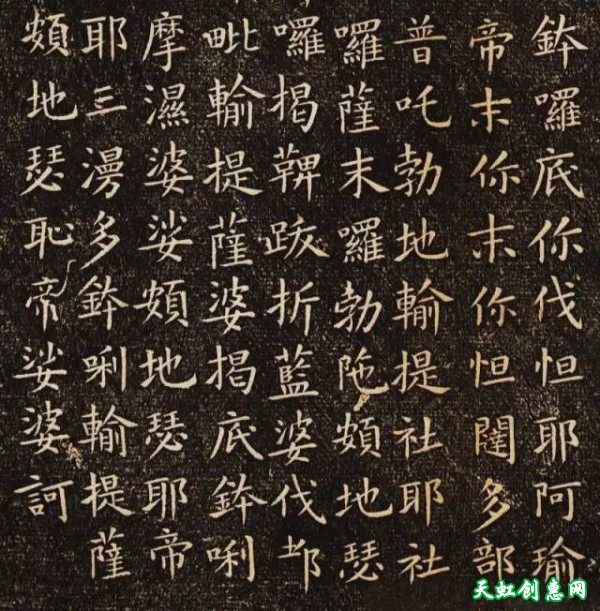 鉢囉底你伐怛耶阿瑜
帝末你末你怛闥多部
普吒勃地輸提社耶社
囉薩末囉勃陁頞地瑟
囉揭鞞跋折藍婆伐都
毗輸提薩婆揭底鉢唎
摩濕婆娑頞地瑟耶帝
耶三漫多鉢唎輸提薩
頞地瑟恥帝娑婆訶
天虹创惠网